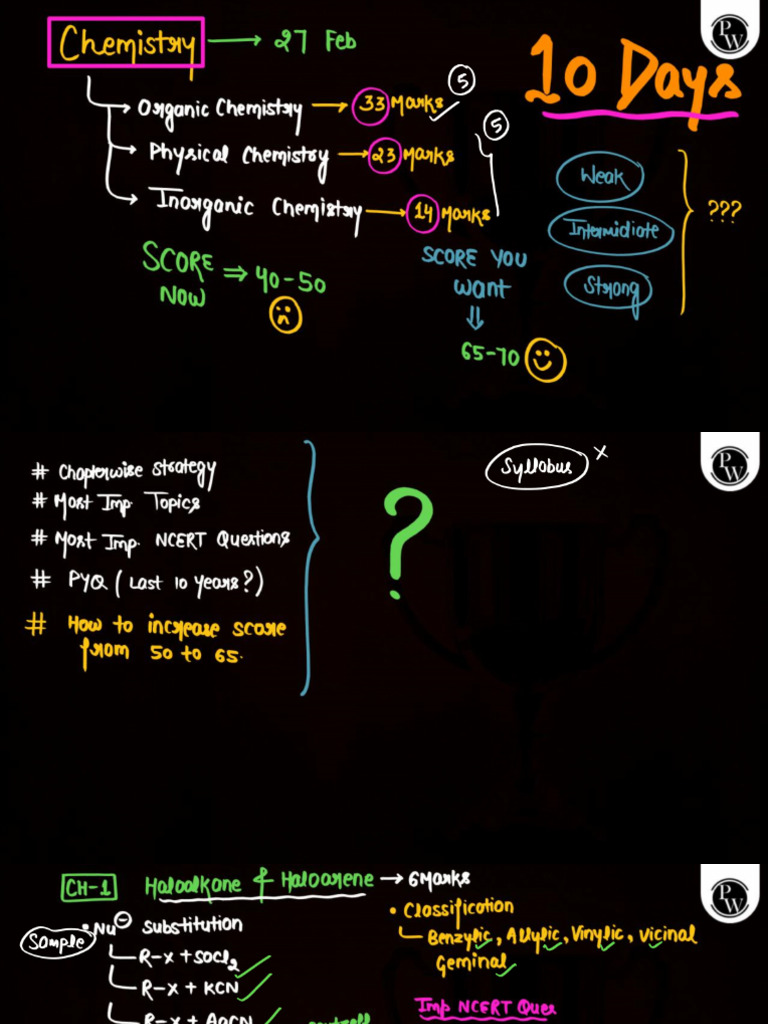 Chemistry → 27 Feb
PW
10 Days
Organic Chemistry → 33 Marks
5
Physical Chemistry → 23 Marks
5
Inorganic Chemistry → 14 Marks
Weak
Intermidiate
Strong
???
SCORE NOW ⇒ 40-50
SCORE YOU
want
⇓
65-70
# Chapterwise strategy
# Most Imp Topics
# Most Imp. NCERT Questions
# PYQ (Last 10 years?)
# How to increase score
from 50 to 65.
?
Syllabus x
PW
CH-1 Haloalkane & Haloarene → 6 Marks
PW
Sample
• Nu⊖ substitution
R-x + SOCl2
R-x + KCN
R-x + AgCN
• Classification
Benzylic, Allylic, Vinylic, vicinal
Geminal
Imp NCERT Ques